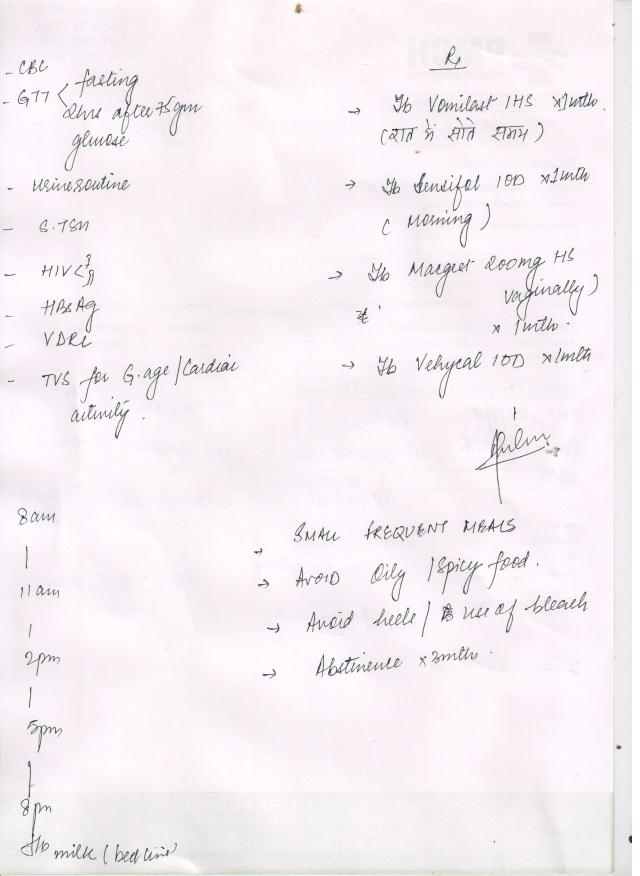 - CBC
- GTT < fasting
2hrs after 75gm
glucose
- Urine routine
- S.TSH
- HIV < I
II
- HBsAg
- VDRL
- TVS for G.age / Cardiac
activity.
Rx
→ Tb Vomilast 1HS x1mth.
(रात में सोते समय)
→ Tb Sensifol 1OD x1mth
( Morning )
→ Tb Margest 200mg HS
vaginally)
x 1mth.
→ Tb Vehycal 1OD x1mth
8am
|
11am
|
2pm
|
5pm
|
8pm
milk (bedtime)
→ SMALL FREQUENT MEALS
→ AVOID Oily / Spicy food.
→ Avoid heels / use of bleach
→ Abstinence x 3mth.